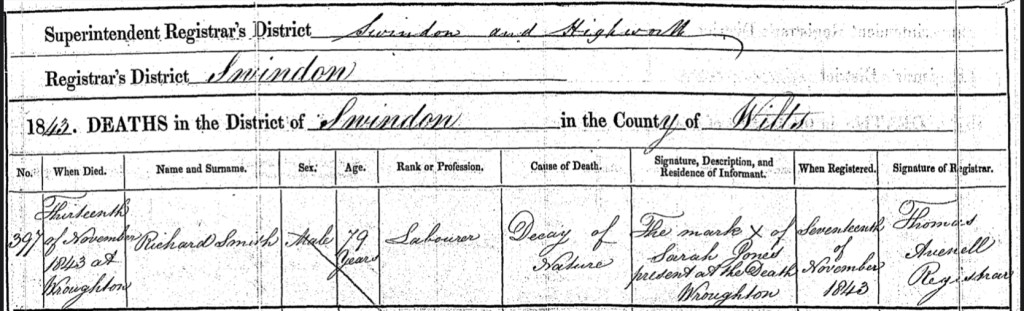 Superintendent Registrar's District Swindon and Highworth
Registrar's District Swindon
1843. DEATHS in the District of Swindon in the County of Wilts
No. When Died. Name and Surname. Sex. Age. Rank or Profession. Cause of Death. Signature, Description, and Residence of Informant. When Registered. Signature of Registrar.
397
Thirteenth
of November
1843 at
Wroughton
Richard Smith
Male
79
Years
Labourer
Decay of
Nature
The mark X of
Sarah Jones
present at the Death
Wroughton
Seventeenth
of
November
1843
Thomas
Avenell
Registrar